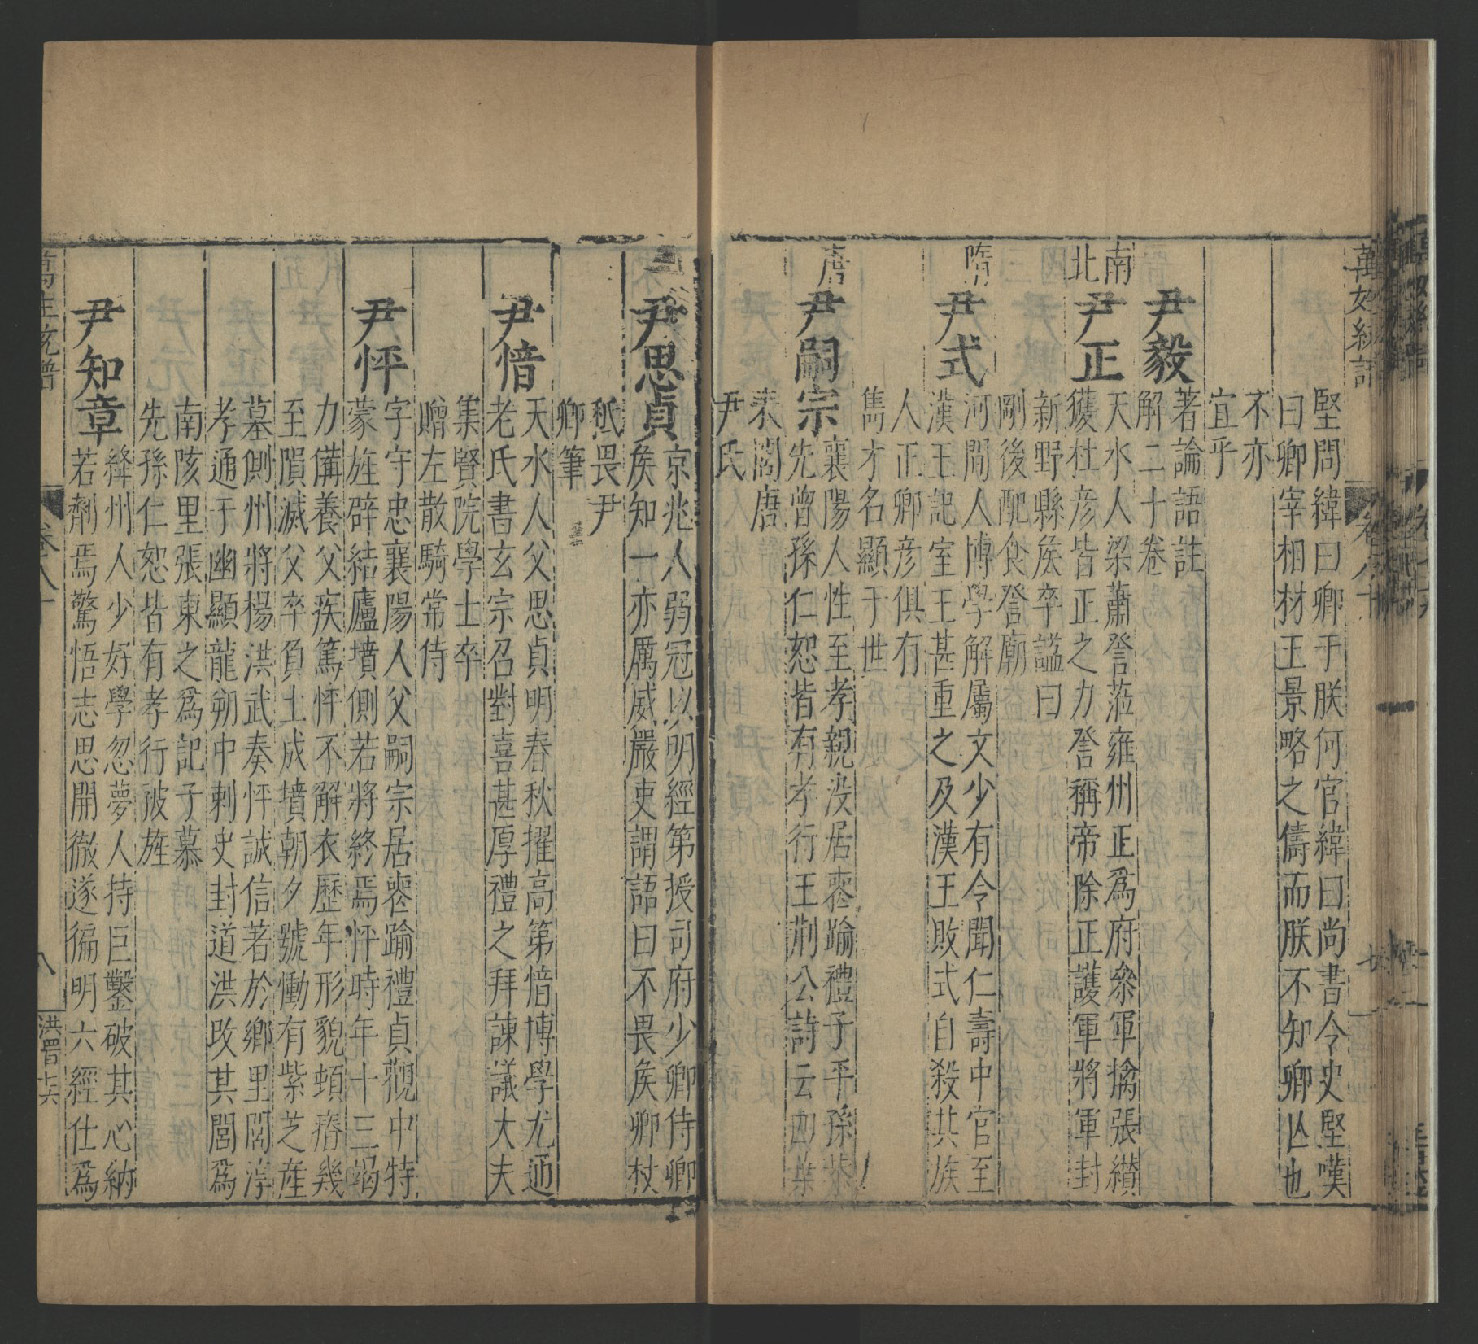 堅問緯曰卿于朕何官緯曰尚書令史堅嘆
曰卿宰相材王景略之儔而朕不知卿亾也
不亦
宜乎
尹毅
著論語註
解二十卷
南北
尹正
天水人梁蕭詧蒞雍州正爲府叅軍擒張纉
獲杜彦皆正之力詧稱帝除正護軍將軍封
新野縣矦卒謚曰
剛後配食詧廟
隋
尹式
河間人博學解屬文少有令聞仁壽中官至
漢王記室王甚重之及漢王敗式自殺其族
人正卿彦俱有
雋才名顯于世
唐
尹嗣宗
襄陽人性至孝親没居䘮踰禮子平孫慕
先曾孫仁恕皆有孝行王荆公詩云四葉
表閣唐
尹氏
尹思貞
京兆人弱冠以明經第授司府少卿侍卿
矦知一亦厲威嚴吏謂語曰不畏矦卿杖
秪畏尹
卿筆
尹愔
天水人父思貞明春秋擢高第愔博學尤通
老氏書玄宗召對喜甚厚禮之拜諫議大夫
集賢院學士卒
贈左散騎常侍
尹怦
字守忠襄陽人父嗣宗居䘮踰禮貞觀中特
蒙旌辟結廬墳側若將終焉怦時年十三竭
力傋養父疾篤怦不解衣歷年形貌頓瘠幾
至隕滅父卒負土成墳朝夕號慟有紫芝産
墓側州將楊洪武奏怦誠信著於鄉里閭淳
孝通于幽顯龍朔中剌史封道洪改其閭爲
南陔里張柬之爲記子慕
先孫仁恕皆有孝行被旌
尹知章
絳州人少好學忽夢人持巨鑿破其心納
若劑焉驚悟志思開徹遂徧明六經仕爲
萬姓統譜
卷八十
八
洪晋六